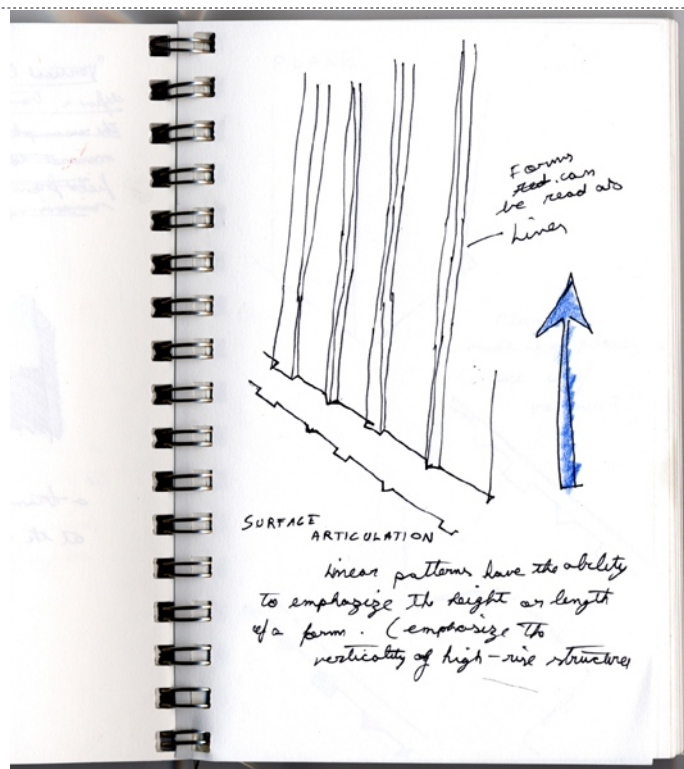 Forms
can
be read as
Lines
SURFACE
ARTICULATION
Linear patterns have the ability
to emphazize the height or length
of a form. (emphasize the
verticality of high-rise structures